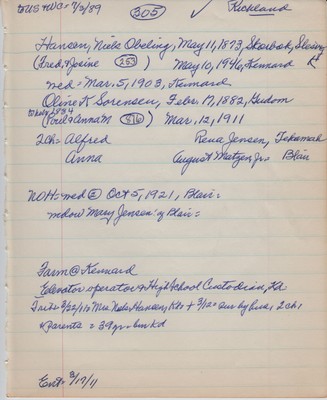 305 ✓ Richland
Hansen, Niels Obeling, May 11, 1873, Skarbak,
(Fred & Josine 253) May 10, 1946, Kennard
med = Mar, 5, 1903, Kennard
Oline K Sorensen, Febr 17, 1882, Gudom
(Poul & Anna M 816) Mar, 12, 1911
2ch = Alfred Rena Jensen, Tekamah
Anna August Matzen, Jr = Blair
NOH = med @ Oct 5, 1921, Blair =
widow Mary Jensen of Blair =
Farm @ Kennard
Elevator operator & High School Custodian, Kd
3/22/11 = Mrs Niels Hansen, Kd = 3/12 = sur by hus, 2ch,
& Parents = 39 yr = bur Kd
Ent = 3/17/11